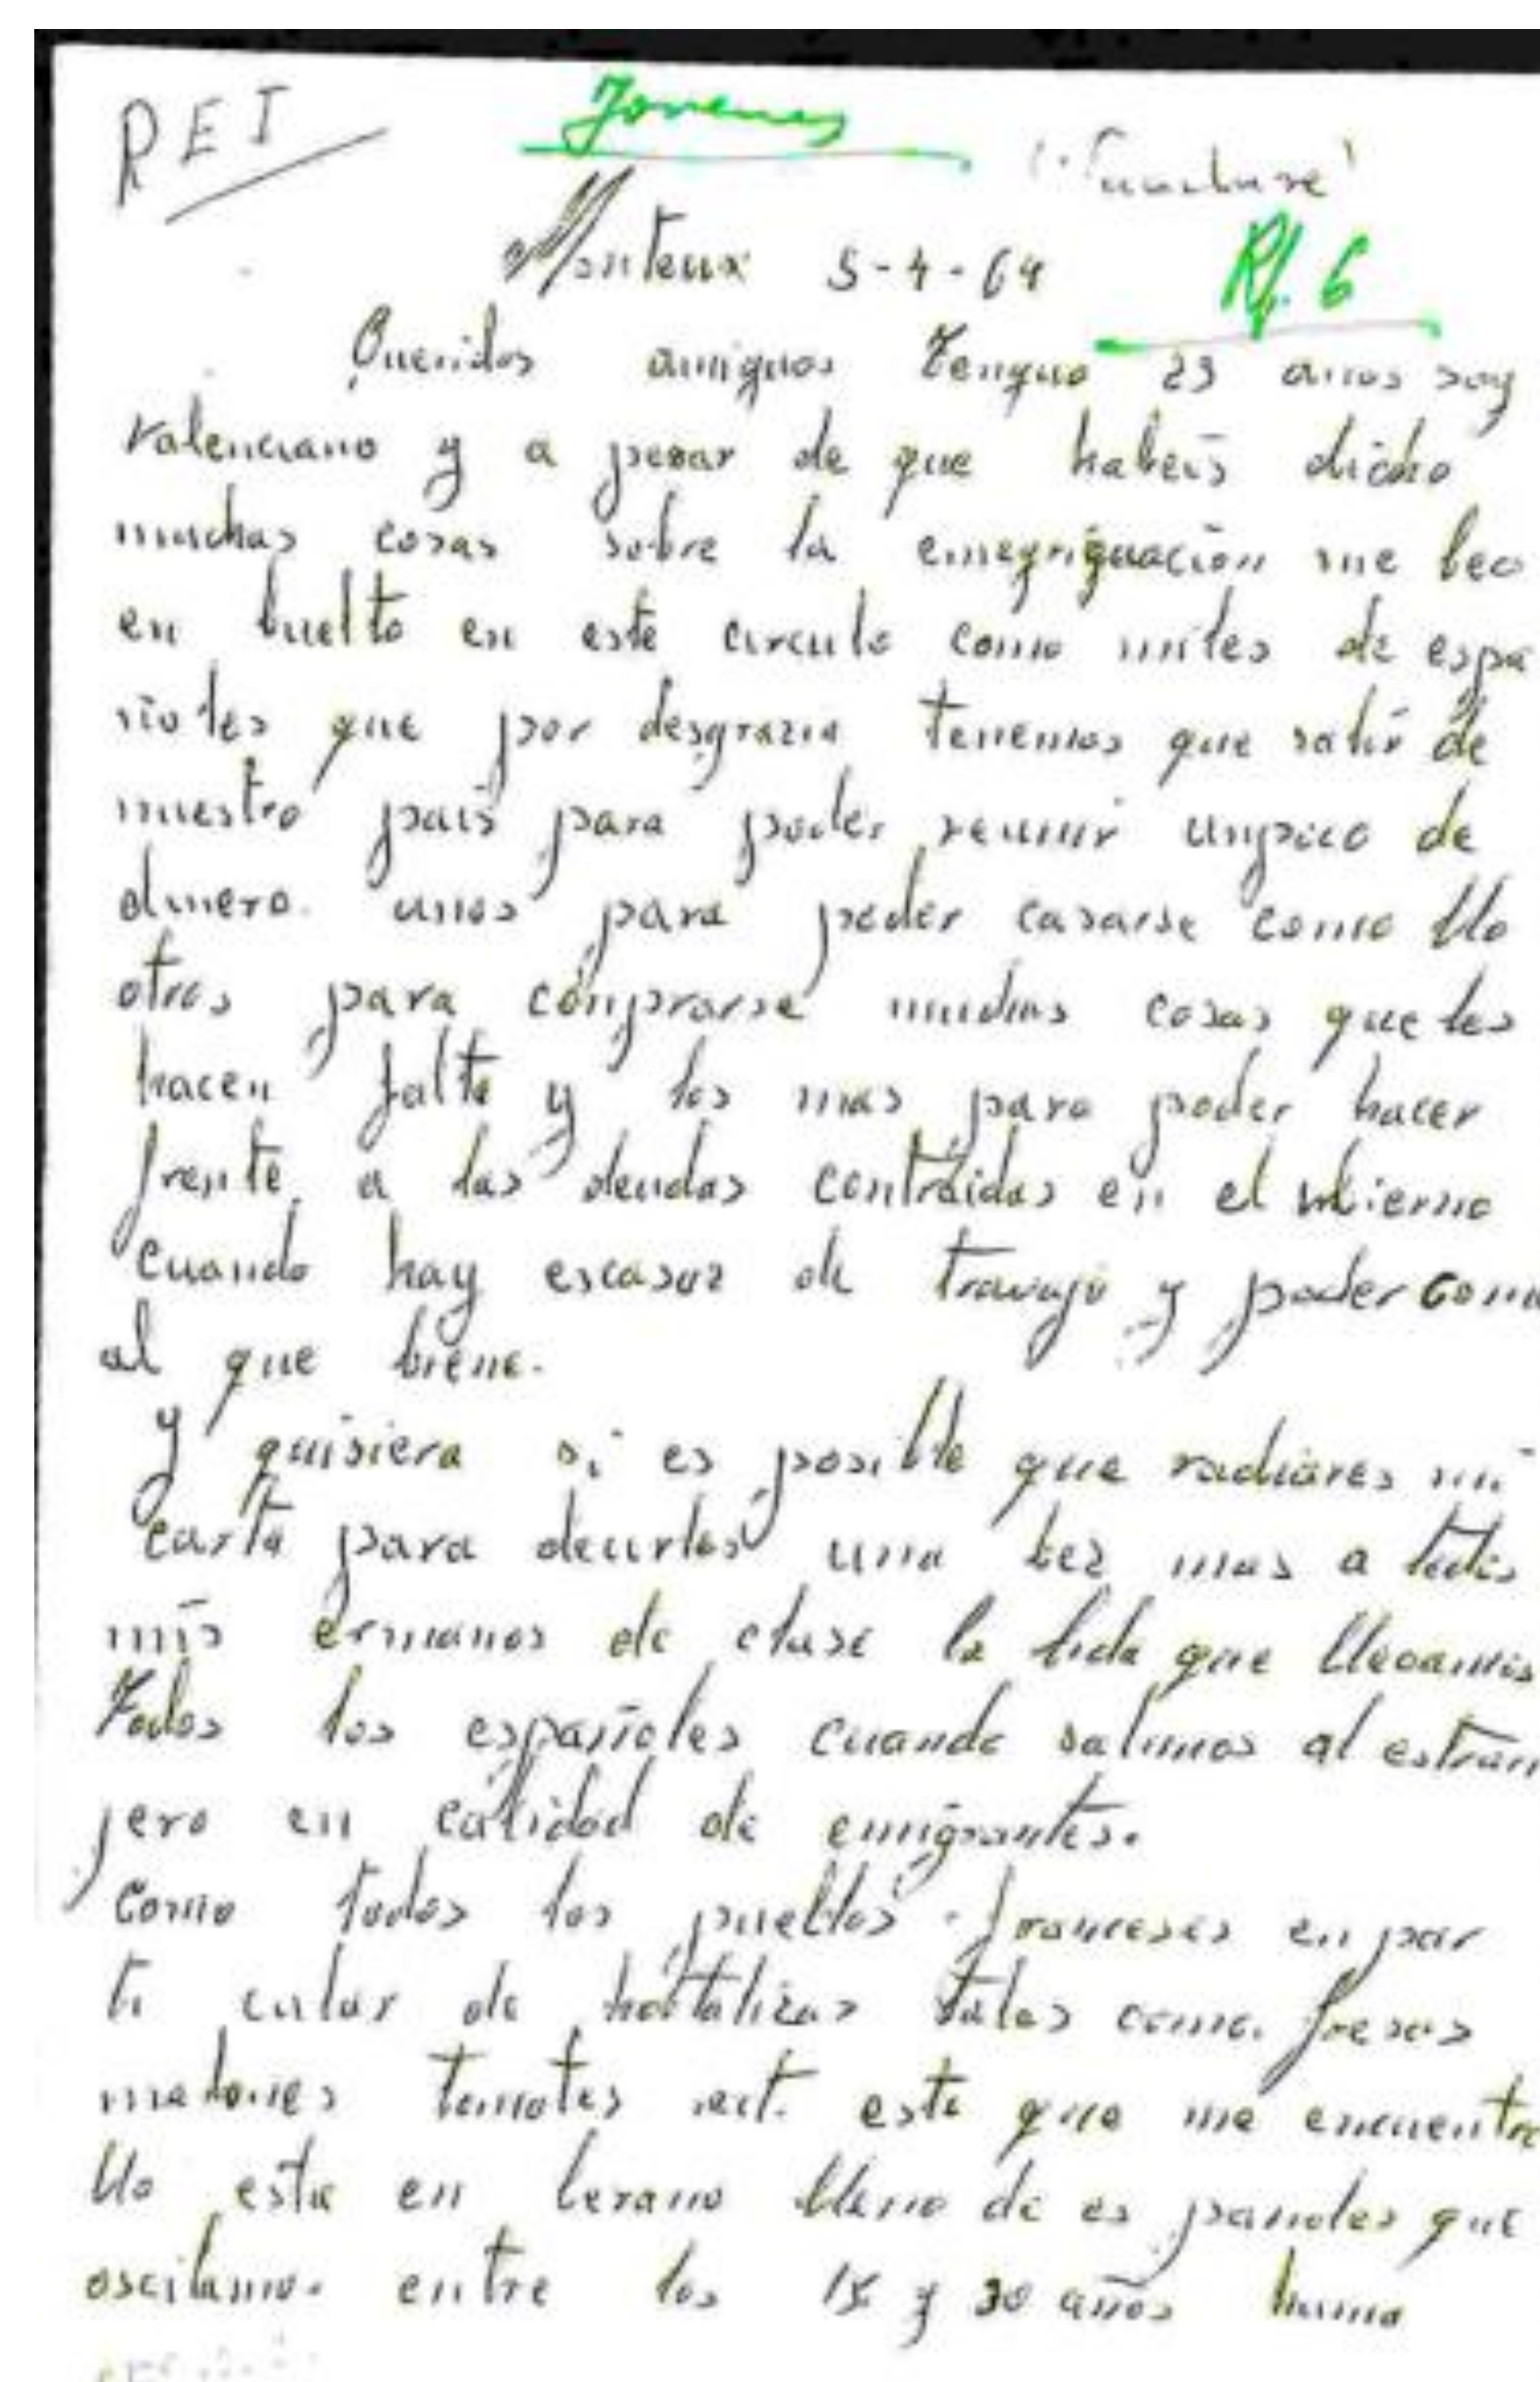 REI
Jovenes
Monteux 5-4-64
R/. 6
Queridos amiguos Tenguo 23 anos soy
Valenciano y a pesar de que habeis dicho
muchas cosas sobre la emegriguación me beo
en buelto en este circulo como miles de espa
ñoles que por desgrazia tenemos que salir de
nuestro pais para poder reunir unpoco de
dinero. unos para poder casarse como llo
otros para conprarse muchas cosas que les
hacen falta y los mas para poder hacer
frente a las deudas contraidas en el
Cuando hay escasez de travajo y poder
al que biene.
y quisiera si es posible que radiares mi
carta para decirles una bez mas a todos
mis ermanos de clase la bida que llebamos
Todos los españoles cuando salimos al estran
jero en calidad de emigrantes.
Como todos los pueblos franceses en par
ti cular de hortalizas tales como. fresas
melones tomates ect. este que me encuentro
llo esta en berano lleno de es panoles que
oscilamos entre los 15 y 30 años